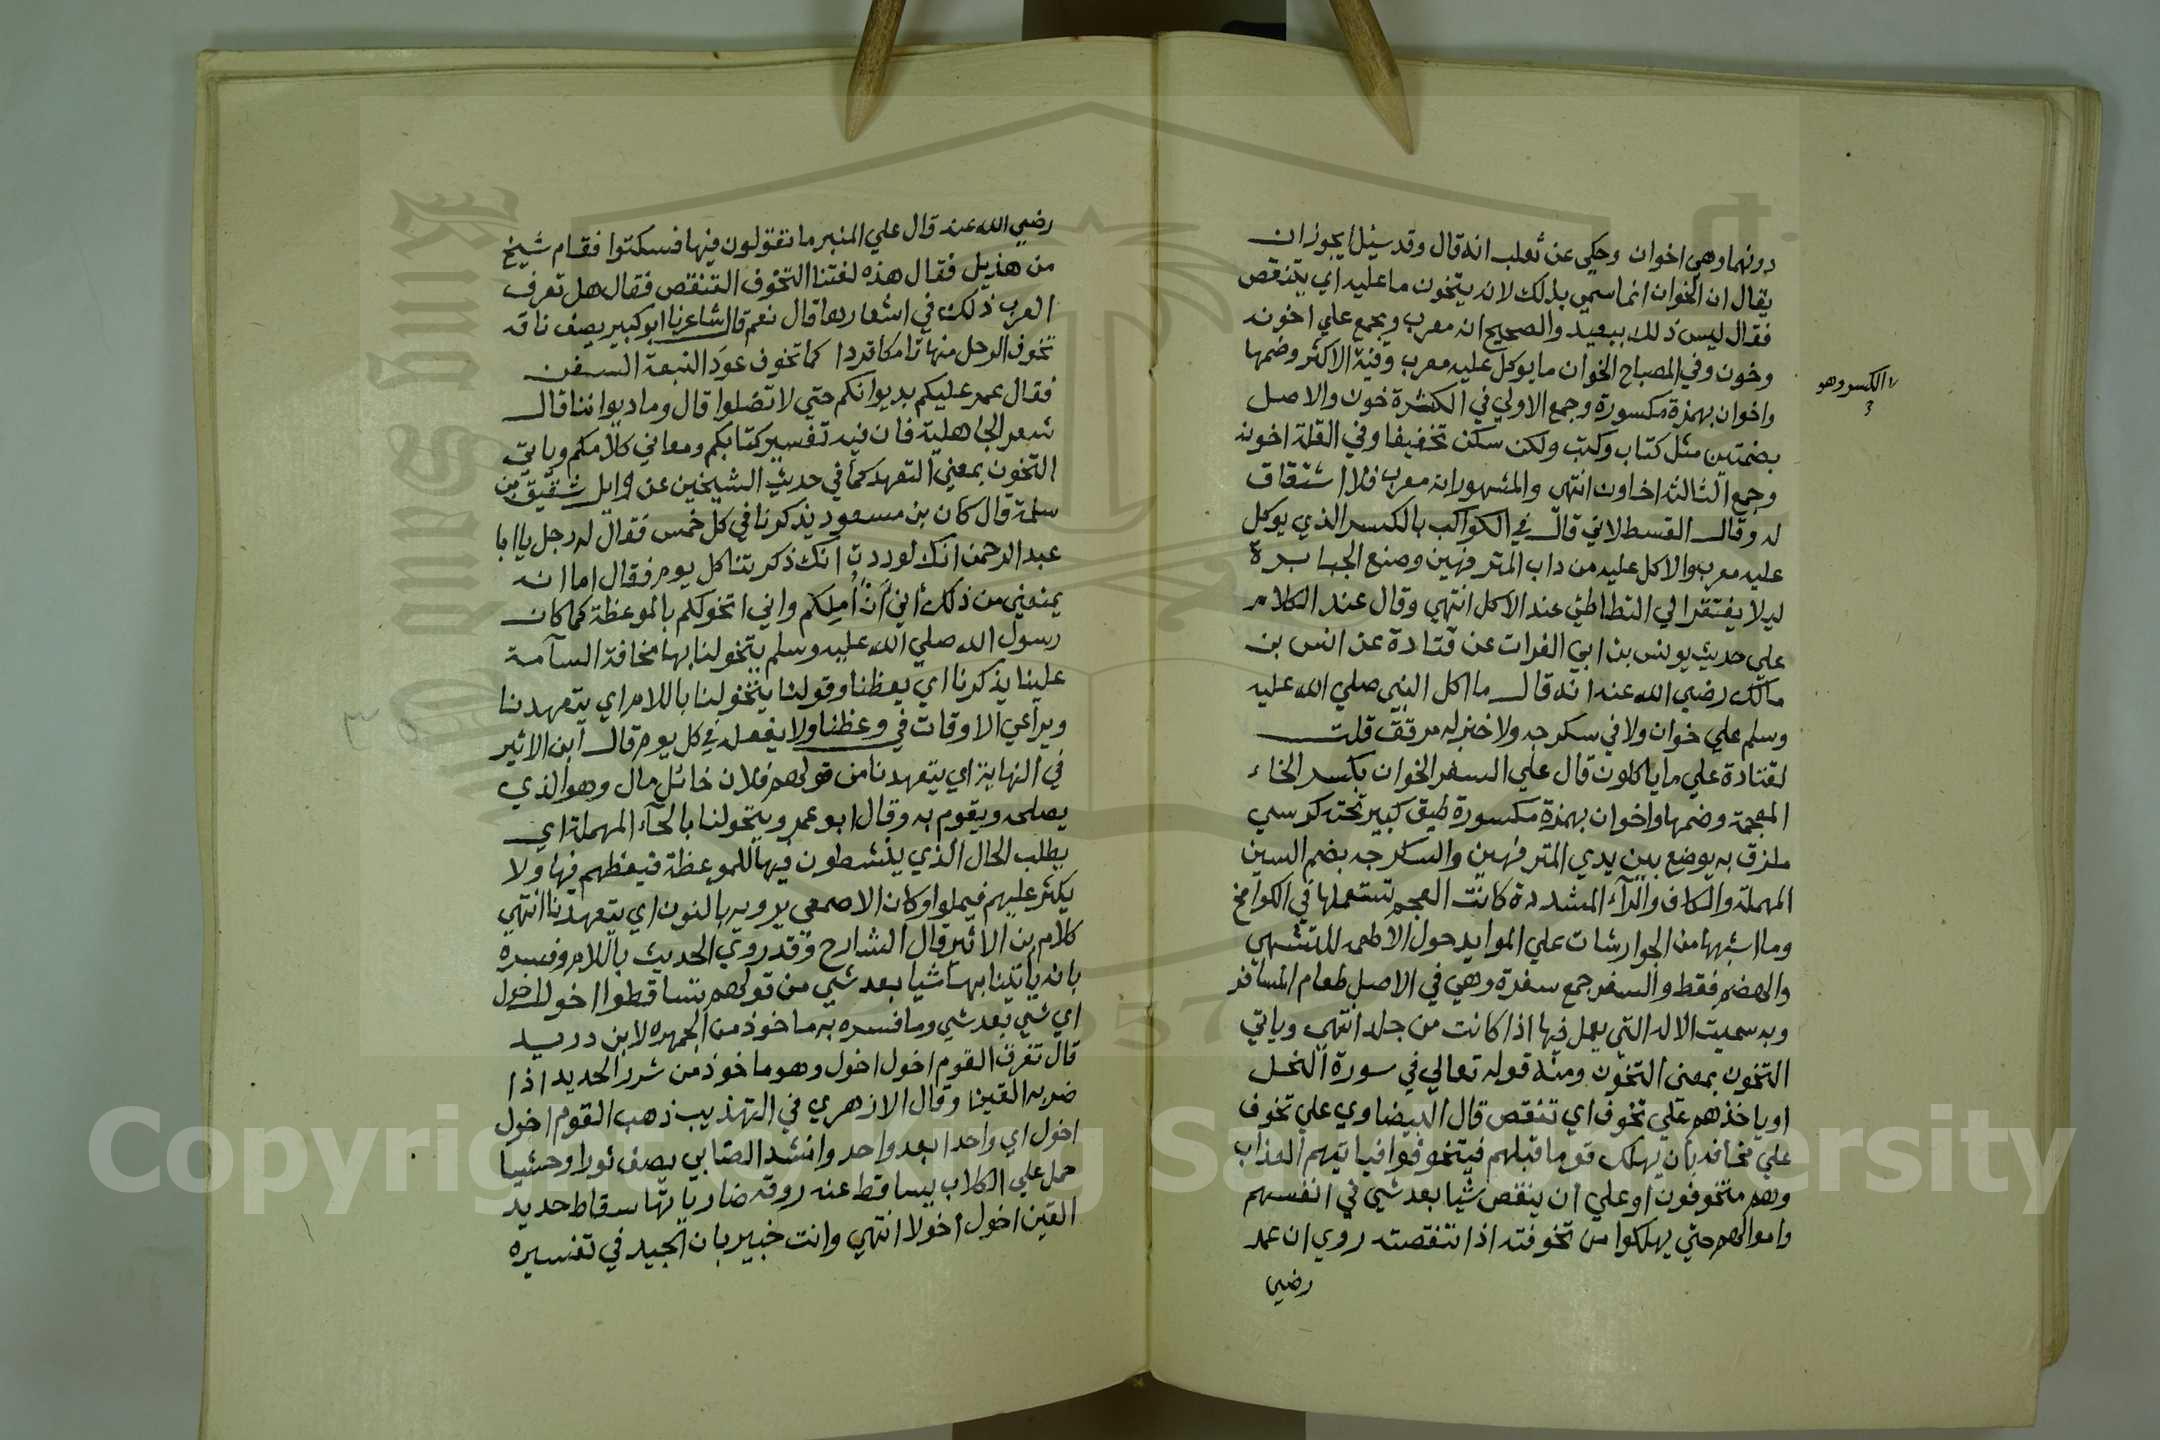 دونهما وهي اخوان وحكي عن ثعلب انه قال وقد سيل ايجوز ان
يقال ان الخوان انما سمي بذلك لانه يتخون ما عليه اي يتنقص
فقال ليس ذلك ببعيد والصحيح انه معرب ويجمع علي اخونه
وخون وفي المصباح الخوان ما يوكل عليه معرب وفيه الاكثر وضمها
الكسر وهو
واخوان بهمزة مكسورة وجمع الاولي في الكثرة خون والاصل
بضمتين مثل كتاب وكتب ولكن سكن تخفيفا وفي القلة اخونه
وجمع الثالثه اخاوين انتهي والمشهور انه معرب فلا اشتقاق
له وقال القسطلاني قال في الكواكب بالكسر الذي يوكل
عليه معرب والاكل عليه من داب المترفهين وصنع الجبابرة
ليلا يفتقر الي التطاطئ عند الاكل انتهي وقال عند الكلام
علي حديث يونس بن ابي الفرات عن قتادة عن انس بن
مالك رضي الله عنه انه قال ما اكل النبي صلي الله عليه
وسلم علي خوان ولا في سكرجه ولا خبز له مرقق قلت
لقتادة علي ما ياكلون قال علي السفر الخوان بكسر الخاء
المعجمة وضمها واخوان بهمزة مكسورة طبق كبير تحته كرسي
ملزق به يوضع بين يدي المترفهين والسكرجه بضم السين
المهملة والكاف والرآء المشددة كانت العجم تستعملها في الكوامخ
وما اشبهها من الجوارشات علي الموايد حول الاطعمه للتشهي
والهضم فقط والسفر جمع سفرة وهي في الاصل طعام المسافر
وبه سميت الاله التي يعمل فيها اذا كانت من جلد انتهي وياتي
التخون بمعني التخوف ومنه قوله تعالي في سورة النحل
او ياخذهم علي تخوف اي تنقص قال البيضاوي علي تخوف
علي مخافه بان يهلك قوما قبلهم فيتخوفوا فياتيهم العذاب
وهم متخوفون او علي ان ينقص شيا بعد شي في انفسهم
واموالهم حتي يهلكوا من تخوفته اذا تنقصته روي ان عمر
رضي
رضي الله عنه قال علي المنبر ما تقولون فيها فسكتوا فقام شيخ
من هذيل فقال هذه لغتنا التخوف التنقص فقال هل تعرف
العرب ذلك في اشعارها قال نعم قال شاعرنا ابو كبير يصف ناقه
تخوف الرحل منها تامكا قردا كما تخوف عود النبعة السفن
فقال عمر عليكم بديوانكم حتي لا تضلوا قال وما ديواننا قال
شعر الجاهلية فان فيه تفسير كتابكم ومعاني كلامكم وياتي
التخون بمعني التعهد كما في حديث الشيخين عن وايل شقيق بن
سلمة قال كان بن مسعود يذكرنا في كل خمس فقال له رجل يا ابا
عبد الرحمن انك لوددت انك ذكرتنا كل يوم فقال اما انه
يمنعني من ذلك أني أن أملكم واني اتخولكم بالموعظة كما كان
رسول الله صلي الله عليه وسلم يتخولنا بها مخافة السآمة
علينا يذكرنا اي يعظنا وقولنا يتخولنا باللام اي يتعهدنا
ويراعي الاوقات في وعظنا ولا يفعله في كل يوم قال ابن الاثير
في النهاية اي يتعهدنا من قولهم فلان خائل مال وهو الذي
يصلحه ويقوم به وقال ابو عمرو يتحولنا بالحآء المهملة اي
يطلب الحال الذي ينشطون فيها للموعظة فيعظهم فيها ولا
يكثر عليهم فيملوا وكان الاصمعي يرويه بالنون اي يتعهدنا انتهي
كلام بن الاثير قال الشارح وقد روي الحديث باللام وفسره
بانه ياتينا بها شيا بعد شي من قولهم تساقطوا اخول اخول
اي شي بعد شي وما فسره به ماخوذ من الجمهره لابن دريد
قال تفرق القوم اخول اخول وهو ماخوذ من شرر الحديد اذا
ضربه القينا وقال الازهري في التهذيب ذهب القوم اخول
اخول اي واحدا بعد واحد وانشد الضابي يصف ثورا وحشيا
حمل علي الكلاب يساقط عنه روقه ضارياتها سقاط حديد
القين اخول اخولا انتهي وانت خبير بان الجيد في تفسيره
Copyright © King Saud University
1957